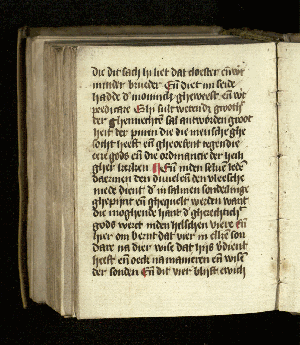 die dit sach hi liet dat cloester en̄ wt
minder brueder En̄ diet mi seide
hadde d' moninch gheweest en̄ wt
predicare Ghi sult weten d' groothz
der ghennechten sal antworden groot
heit der pinen die die mensche ghe
socht heeft en̄ gheoefent teghen die
eere gods en̄ die ordinancie der heili
gher kerken En̄ inden seluen lede
daermen den duuel en̄ den vleesche
mede dient d' in salmen sonderlinge
ghepijnt en̄ ghequelt werden want
die moghende hant d' gherechticheit
gods werct inden helschen viere en̄
hier om bernt dat vier in elken son
dare na dier wise dat hijs v'dient
heeft en̄ oeck na manieren en̄ wisen
der sonden En̄ dit vier blijft ewich